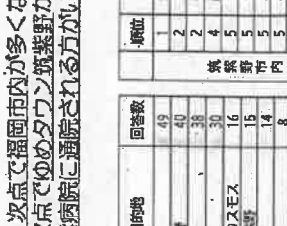 次点で福岡市内が多くな
点でゆめタウン筑紫野が
病院に通院される方がい
的地 回答数
49
40
38
30
スモス 16
15
14
8
順位
1
2
2
4
5
5
5
5
筑紫野市内